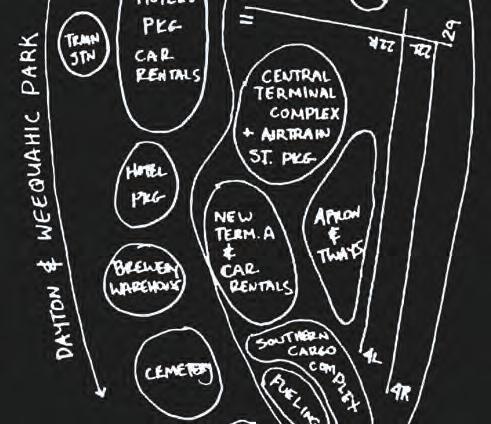 DAYTON & WEEQUAHIC PARK
TRAIN
STN
HOTELS
PKG
CAR
RENTALS
HOTEL
PKG
BREWERY
WAREHOUSE
CEMETERY
CENTRAL
TERMINAL
COMPLEX
+ AIRTRAIN
ST. PKG
NEW
TERM. A
&
CAR
RENTALS
APRON
&
TWAYS
SOUTHERN
CARGO
COMPLEX
FUELING
22R
22L
29
4L
4R